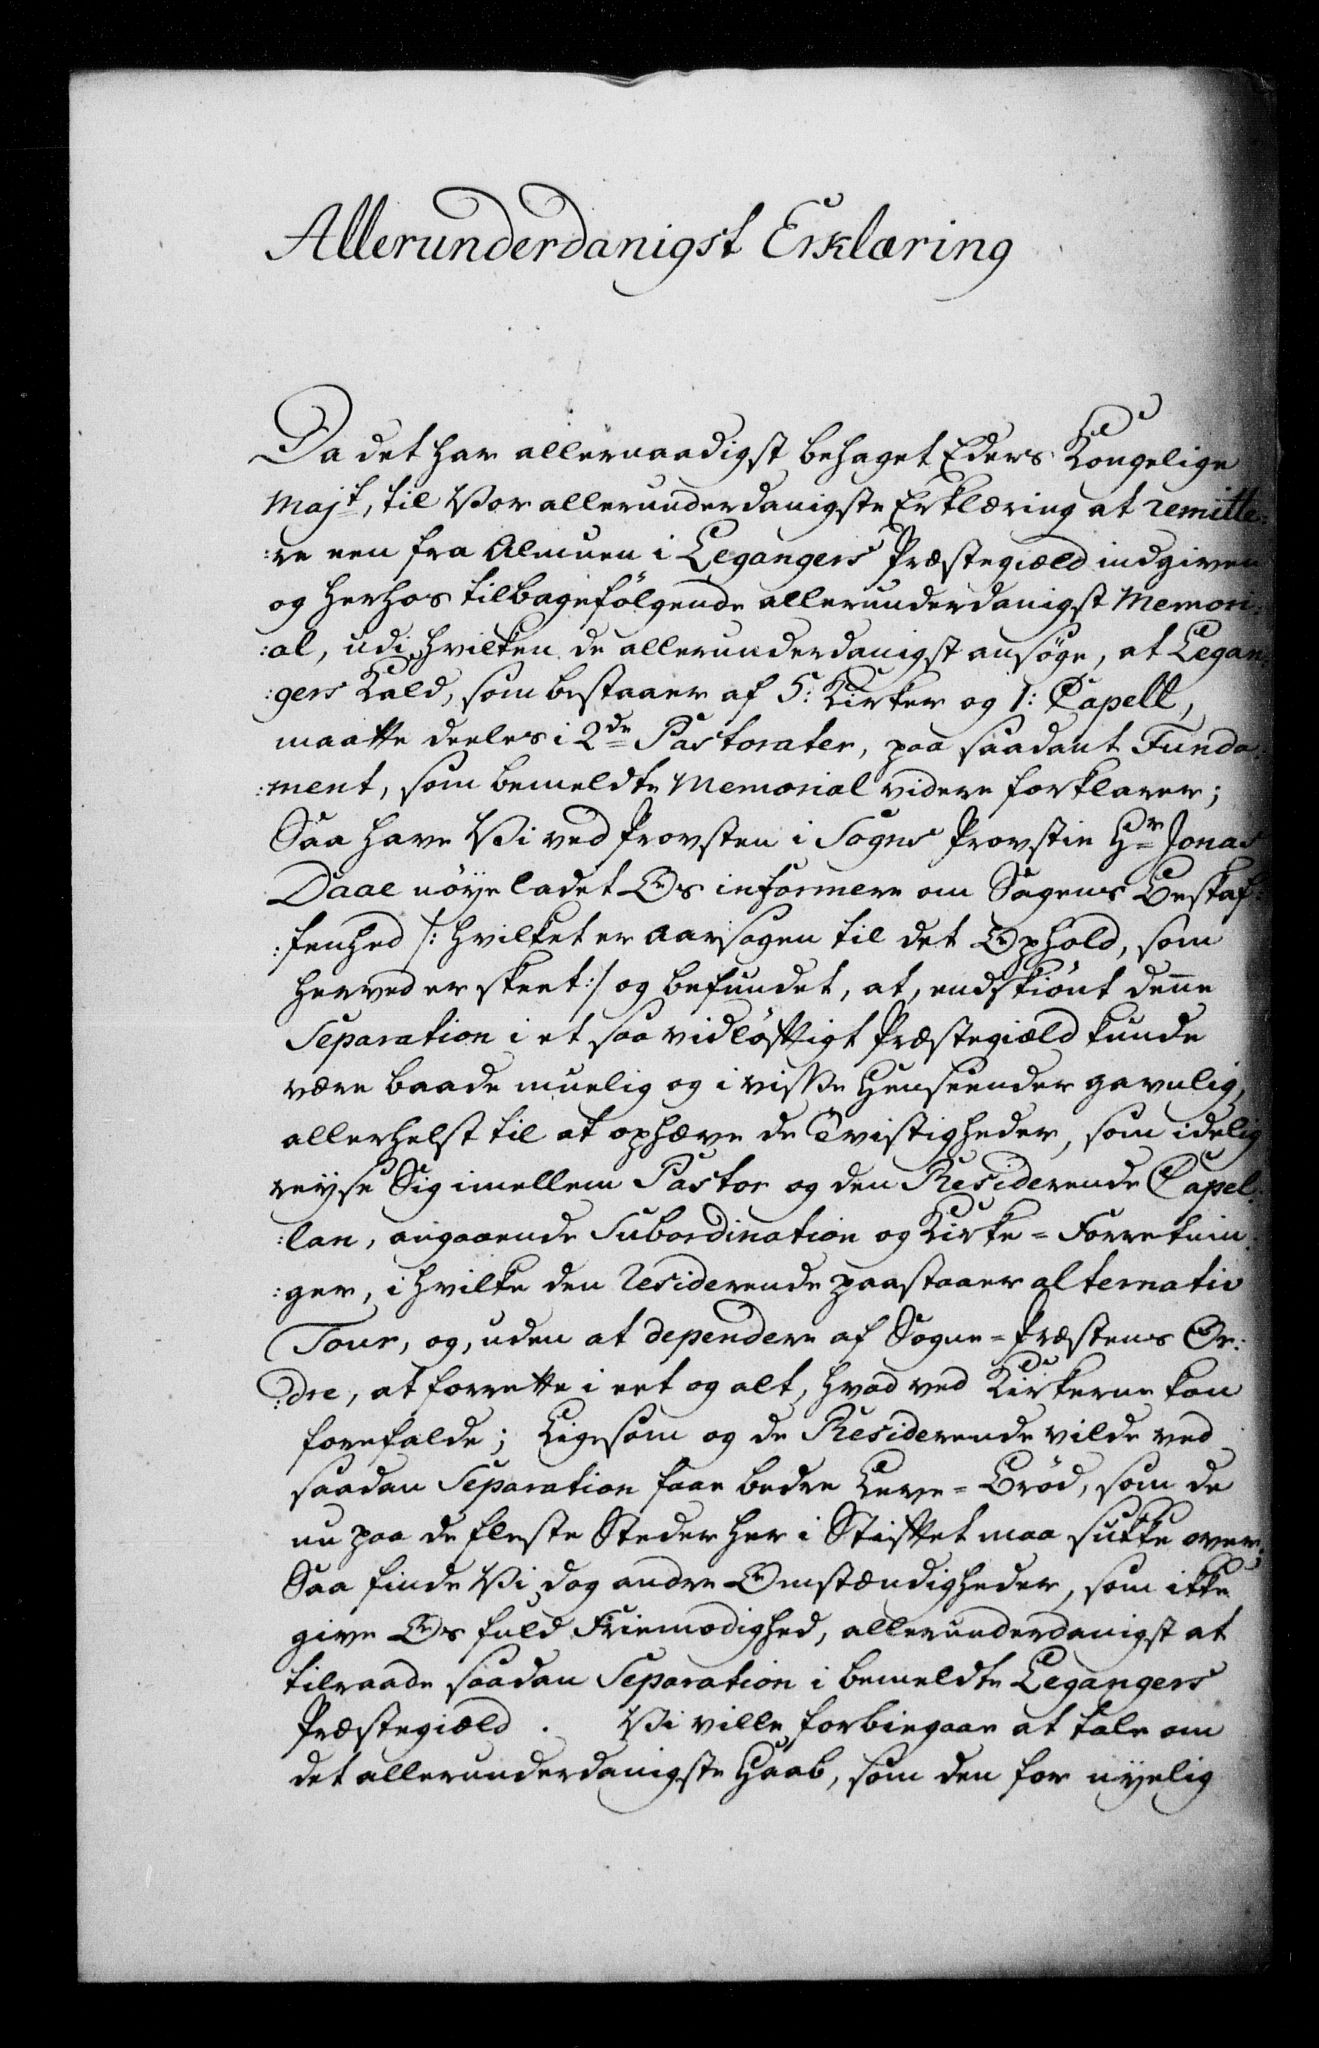 Allerunderdanigst Erklæring
Da det har allernaadigst behaget Eders Kongelige
Majt, til Vor allerunderdanigste Erklæring at remitte:
:re een fra Almuen i Legangers Præstegiæld indgiven
og herhos tilbagefölgende allerunderdanigst Memori:
:al, udi hvilken de allerunderdanigst ansöge, at Legan:
:gers Kald, som bestaaer af 5: Kirker og 1: Capell,
maatte deeles i 2de Pastorater, paa saadant Funda:
:ment, som bemeldte Memorial videre forklarer;
Saa have Vi ved Provsten i Sogns Provstie Hr Jonas
Daae nöye ladet Os informere om Sagens Beskaf:
:fenhed /: hvilket er aarsagen til det Ophold, som
herved er skeet :/ og befundet, at, endskiönt denne
Separation i et saa vidlöftigt Præstegiæld kunde
være baade muelig og i visse Henseender gavnlig,
allerhelst til at ophæve de Tvistigheder, som idelig
reyse Sig imellem Pastor og den Residerende Capel:
:lan, angaaende Subordination og Kirke=Forretnin:
:ger, i hvilke den residerende paastaaer alternativ
Tour, og, uden at dependere af Sogne=Præstens Or:
:dre, at forrette i eet og alt, hvad ved Kirkerne kan
forefalde; Ligesom og de Residerende vilde ved
saadan Separation faae bedre Leve=Bröd, som de
nu paa de fleste Steder her i Stiftet maa sukke over;
Saa finde Vi dog andre Omstændigheder, som ikke
give Os fuld Friemodighed, allerunderdanigst at
tilraade saadan Separation i bemeldte Legangers
Præstegiæld. Vi ville forbiegaae at tale om
det allerunderdanigste Haab, som den for nyelig